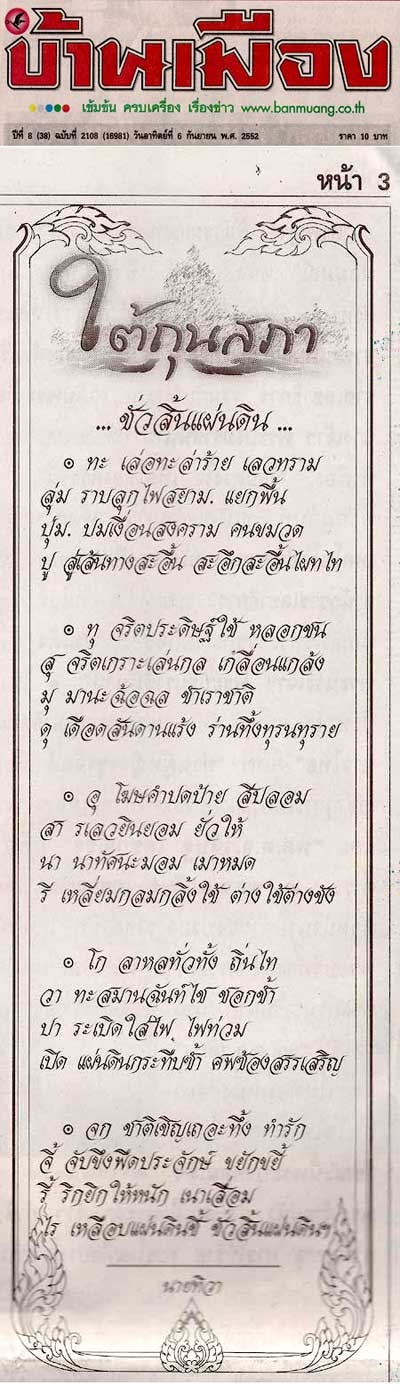 บ้านเมือง
เข้มข้น ครบเครื่อง เรื่องข่าว www.banmuang.co.th
ปีที่ 8 (38) ฉบับที่ 2108 (16981) วันอาทิตย์ที่ 6 กันยายน พ.ศ. 2552 ราคา 10 บาท
หน้า 3
ใต้ถุนสภา
... ชั่วสิ้นแผ่นดิน ...
๑ ทะ เล่อทะล่าร้าย เลวทราม
ลุ่ม ราบลุกไฟสยาม. แยกพื้น
ปุ่ม. ปมเงื่อนสงคราม คนขมวด
ปู สู่เส้นทางสะอื้น สะอึกสะอื้นไผทไท
๑ ทุ จริตประดิษฐ์ใช้ หลอกชน
สุ จริตเกราะเล่นกล เก๋ลื่อนแกล้ง
มุ มานะฉ้อฉล ชำเราชาติ
ดุ เดือดสันดานแร้ง ร่านทึ้งทุรนทุราย
๑ อุ โฆษคำปดป้าย สีปลอม
สา รเลวยินยอม ยั่วให้
นา นาทัศน์ะมอม เมาหมด
รี เหลี่ยมกลมกลิ้งใช้ ต่างใช้ต่างชัง
๑ โก ลาหลทั่วทั้ง ถิ่นไท
วา ทะสมานฉันท์ไช ชอกช้ำ
ปา ระเบิดใส่ไฟ ไฟท่วม
เปิด แผ่นดินกระทืบซ้ำ ศพซ้องสรรเสริญ
๑ จก ชาติเชิญเถอะทึ้ง ทำรัก
จี้ จับขึงพืดประจักษ์ ขยักขยี้
รี้ ริกยิกให้หนัก เนาเสื่อม
ไร เหลือบแผ่นดินชี้ ชั่วสิ้นแผ่นดินฯ
นายทิวา